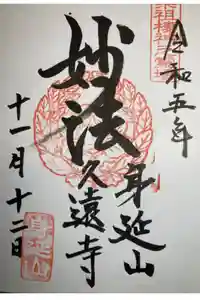 令和五年
妙法
身延山
久遠寺
十一月十二日
身延山